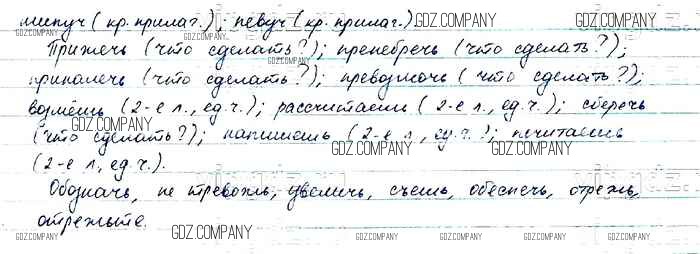 липуч (кр. прилаг.); певуч (кр. прилаг.)
Прижечь (что сделать?); пренебречь (что сделать?);
приналечь (что сделать?); превозмочь (что сделать?);
возьмёшь (2-е л., ед.ч.); рассчитаешь (2-е л., ед.ч.); сберечь
(что сделать?); напишешь (2-е л., ед.ч.); почитаешь
(2-е л., ед.ч.).
Обозначь, не тревожь, увеличь, съешь, обеспечь, отрежь,
отрежьте.
GDZ.COMPANY
GDZ.COMPANY
GDZ.COMPANY
GDZ.COMPANY
GDZ.COMPANY
GDZ.COMPANY
GDZ.COMPANY
GDZ.COMPANY
GDZ.COMPANY
GDZ.COMPANY
GDZ.COMPANY
GDZ.COMPANY
GDZ.COMPANY